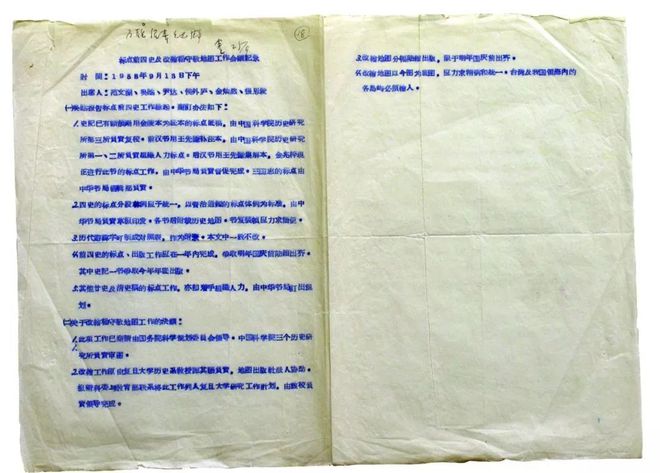 ⑱
标点前四史及改绘杨守敬地图工作会议记录
时 间：1958年9月13日下午
出席人：范文澜、吴晗、尹达、侯外庐、金灿然、张思俊
㈠吴晗报告标点前四史工作。商订办法如下：
1.史记已有顾颉刚用金陵本为底本的标点底稿，由中国科学院历史研究
所第三所负责复校。前汉书用王先谦补注本，由中国科学院历史研究
所第一、二所负责组织人力标点。后汉书用王先谦集解本，金兆梓现
正进行此书的标点工作，由中华书局负责督促完成。三国志的标点由
中华书局负责。
2.四史的标点分段体例应予统一，以资治通鉴的标点体例为标准，由中
华书局负责草拟印发。各书后附载历史地图。书装帧应力求简便。
3.历代避讳字可制成对照表，作为附录。本文中一致不改。
4.前四史的标点、出版工作应在一年内完成，争取明年国庆前陆续出齐。
其中史记一书争取今年年底出版。
5.其他廿史及清史稿的标点工作，亦即着手组织人力，由中华书局订出规
划。
㈡关于改绘杨守敬地图工作的决议：
1.此项工作已由国务院科学规划委员会领导。中国科学院三个历史研
究所负责审图。
2.改绘工作原由复旦大学历史系教授谭其骧负责，地图出版社派人协助。
拟与教育部联系将此工作列入复旦大学研究工作计划，由该校负
责领导完成。
3.改绘地图分幅陆续出版，限于明年国庆前出齐。
4.改绘地图以今图为底图，应力求精确和统一。台湾及我国领海内的
各岛屿必须绘入。